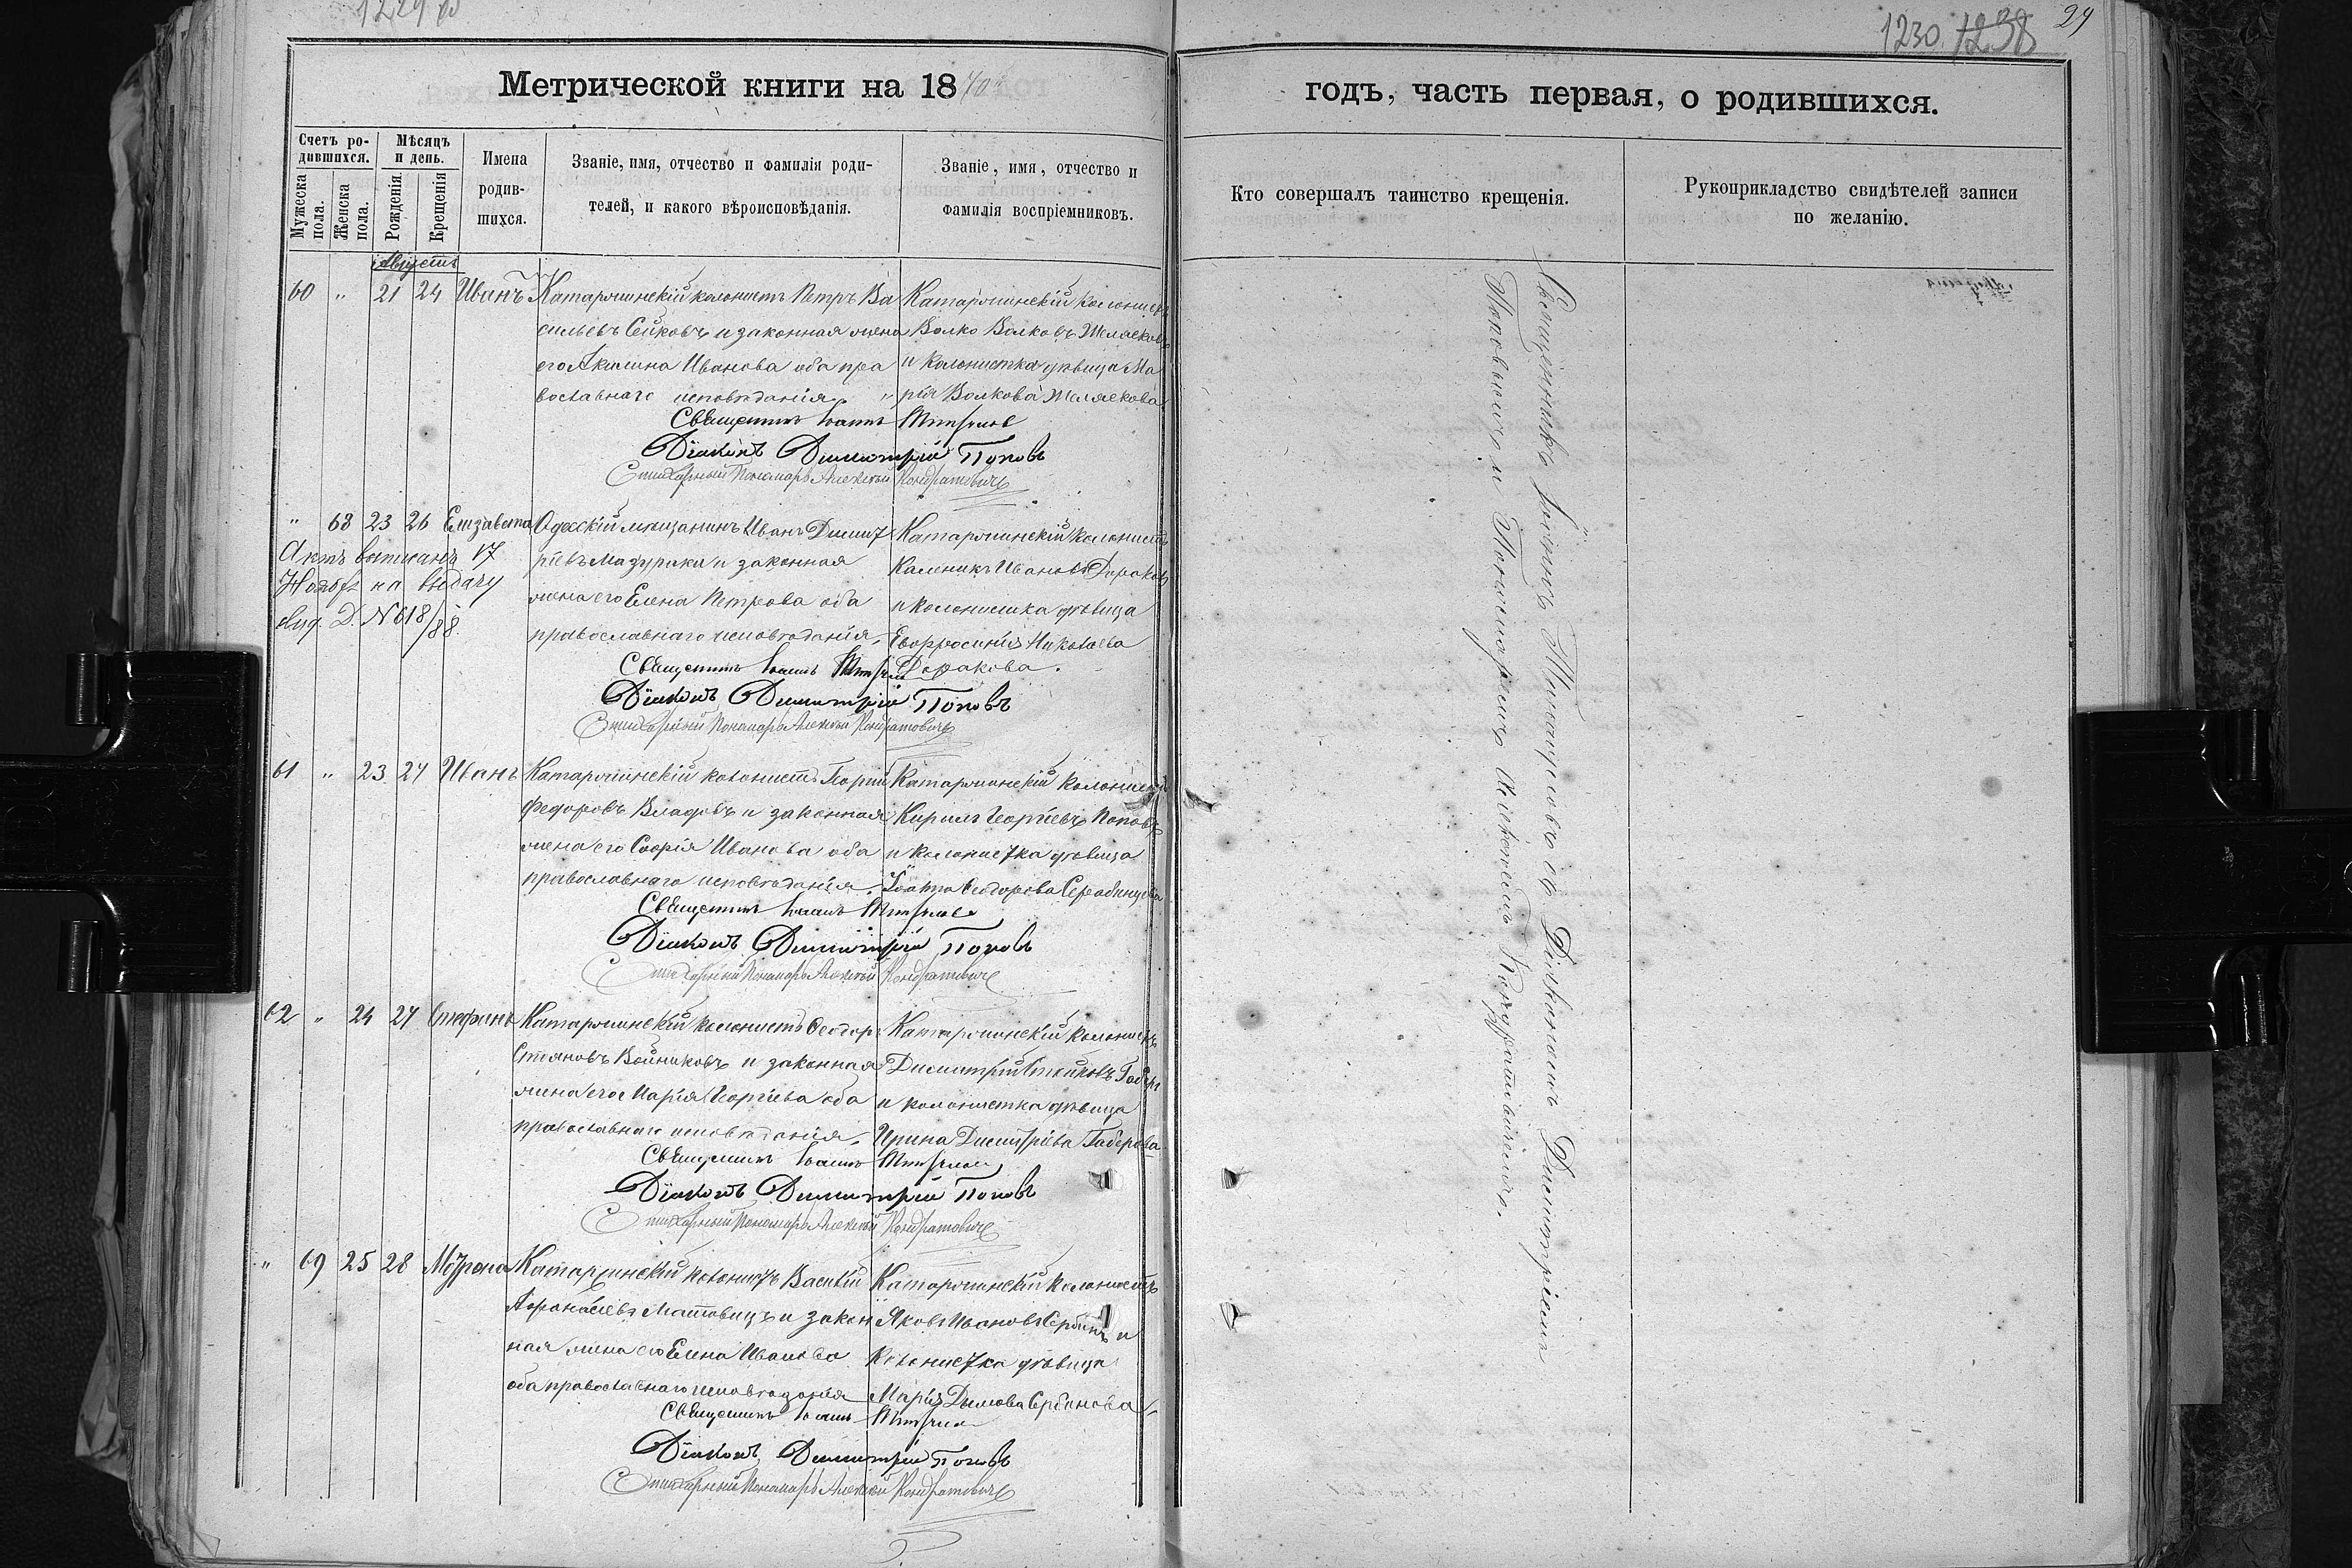 1229 об
1230 1238 29
Метрической книги на 1870 годъ, часть первая, о родившихся.
Счетъ ро-
дившихся.
Мужеска пола.
Женска пола.
Мѣсяцъ
и день.
Рожденія.
Крещенія
Имена
родив-
шихся.
Званіе, имя, отчество и фамилія роди-
телей, и какого вѣроисповѣданія.
Званіе, имя, отчество и
фамилія воспріемниковъ.
Кто совершалъ таинство крещенія.
Рукоприкладство свидѣтелей записи
по желанію.
Августъ
60 " 21 24 Иванъ
Катаржинскій колонистъ Петръ Ва
сильевъ Сейковъ и законная жена
его Акилина Иванова оба пра
вославнаго исповѣданія "
Катаржинскій колонистъ
Волко Волковъ Желясковъ
и колонистка дѣвица Ма
рія Волкова Желяскова
Священникъ Іоаннъ
Діаконъ Димитрій Поповъ
Стихарный Пономарь Алексѣй Кондратовичъ
" 68 23 26 Елизавета
Одесскій мѣщанинъ Иванъ Димит
ріевъ и законная
жена его Елена Петрова оба
православнаго исповѣданія.
Катаржинскій колонистъ
Каленикъ Ивановъ
и колонистка дѣвица
Евфросинія Николаева
Актъ выписанъ 17
Ноября на выдачу
Д. N 618/88.
Священникъ Іоаннъ
Діаконъ Димитрій Поповъ
Стихарный Пономарь Алексѣй Кондратовичъ
61 " 23 27 Иванъ
Катаржинскій колонистъ Георгій
Федоровъ Владовъ и законная
жена его Софія Иванова оба
православнаго исповѣданія.
Катаржинскій колонистъ
Кирилъ Георгіевъ Поповъ
и колонистка дѣвица
Ѳеодорова
Священникъ Іоаннъ
Діаконъ Димитрій Поповъ
Стихарный Пономарь Алексѣй Кондратовичъ
62 " 24 27 Стефанъ
Катаржинскій колонистъ Ѳеодоръ
Стояновъ Войниковъ и законная
жена его Марія Георгіева оба
православнаго исповѣданія.
Катаржинскій колонистъ
Димитрій Стойковъ
и колонистка дѣвица
Ирина Димитріева Габерова
Священникъ Іоаннъ
Діаконъ Димитрій Поповъ
Стихарный Пономарь Алексѣй Кондратовичъ
" 69 25 28 Мотрона
Катаржинскій колонистъ Василій
Афанасіевъ и закон
ная жена его Елена Иванова
оба православнаго исповѣданія
Катаржинскій колонистъ
Яковъ Ивановъ Сербинъ и
колонистка дѣвица
Марія Дымова Сербинова
Священникъ Іоаннъ
Діаконъ Димитрій Поповъ
Стихарный Пономарь Алексѣй Кондратовичъ
Священникъ Іоаннъ съ Діакономъ Димитріемъ
Поповымъ и Пономаремъ Алексѣемъ Кондратовичемъ.